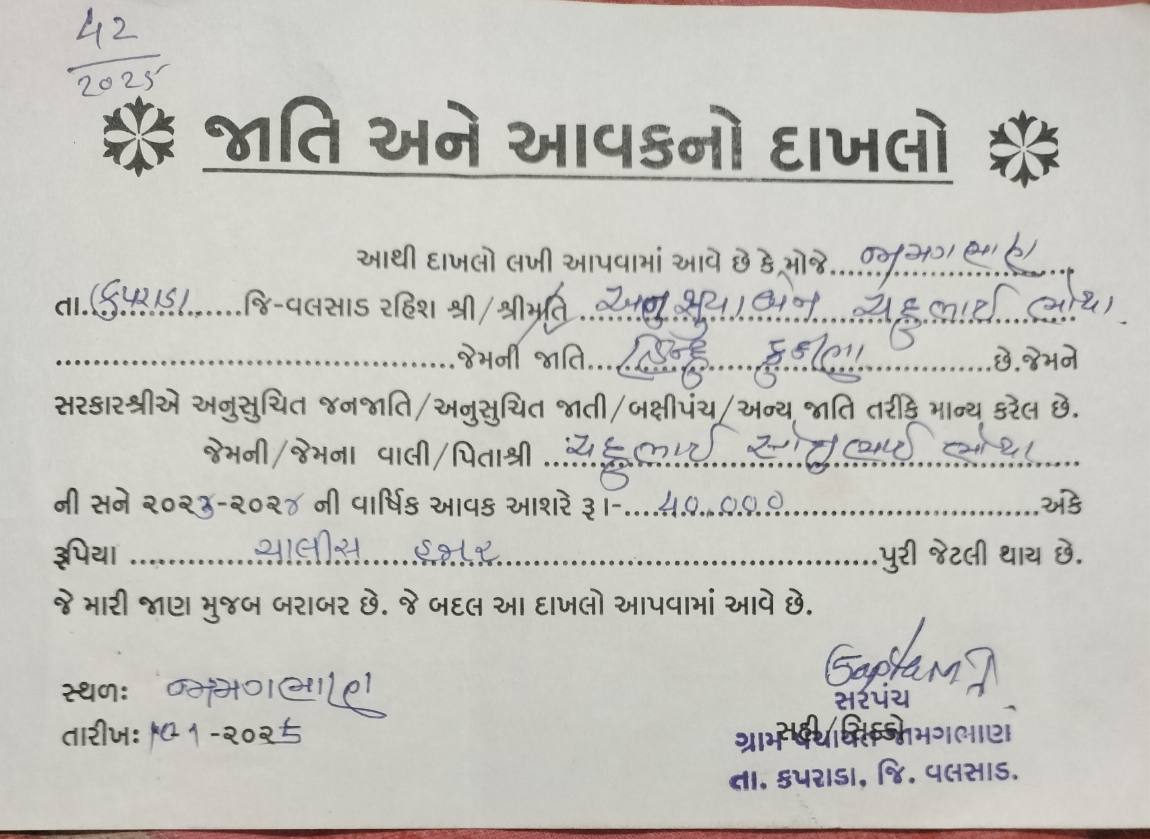 42
2025
જાતિ અને આવકનો દાખલો
આથી દાખલો લખી આપવામાં આવે છે કે મોજે જામગભાણ
તા. કપરાડા જિ-વલસાડ રહિશ શ્રી/શ્રીમતિ અનુસુયાબેન ચંદુભાઈ ભોયા
જેમની જાતિ હિન્દુ કુકણા છે.જેમને
સરકારશ્રીએ અનુસુચિત જનજાતિ/અનુસુચિત જાતી/બક્ષીપંચ/અન્ય જાતિ તરીકે માન્ય કરેલ છે.
જેમની/જેમના વાલી/પિતાશ્રી ચંદુભાઈ સોનુભાઈ ભોયા
ની સને ૨૦૨૩-૨૦૨૪ ની વાર્ષિક આવક આશરે રૂા- ૪૦.૦૦૦ અંકે
રૂપિયા ચાલીસ હજાર પુરી જેટલી થાય છે.
જે મારી જાણ મુજબ બરાબર છે. જે બદલ આ દાખલો આપવામાં આવે છે.
સ્થળઃ જામગભાણ
તારીખઃ -૨૦૨૫
સરપંચ
સહી/સિક્કો
ગ્રામ પંચાયત જામગભાણ
તા. કપરાડા, જિ. વલસાડ.